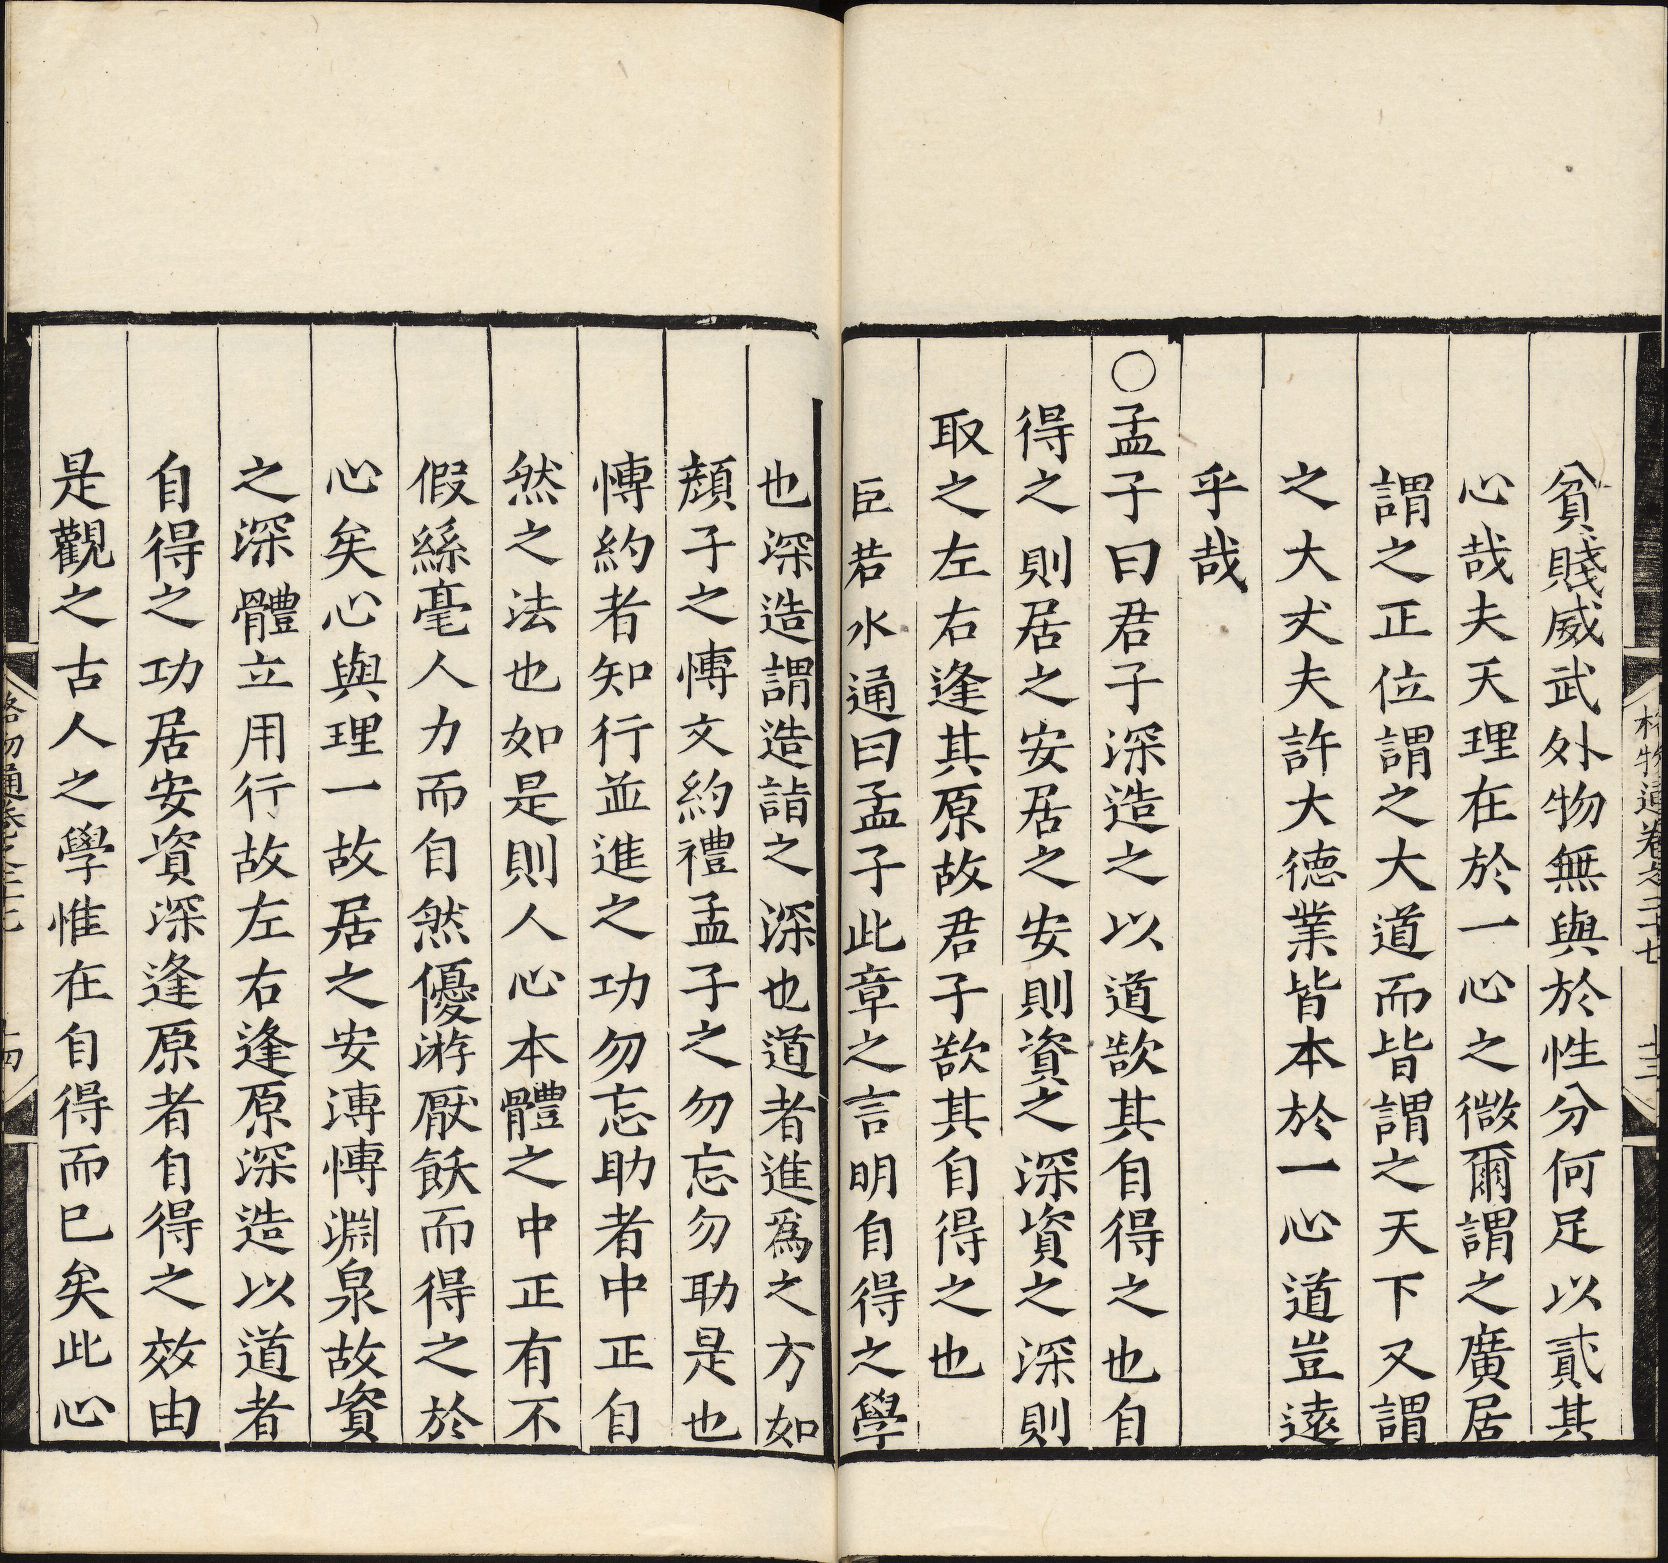 格物通卷之二十七 十三
貧賤威武外物無與於性分何足以貳其
心哉夫天理在於一心之微爾謂之廣居
謂之正位謂之大道而皆謂之天下又謂
之大丈夫許大德業皆本於一心道豈遠
乎哉
〇孟子曰君子深造之以道欲其自得之也自
得之則居之安居之安則資之深資之深則
取之左右逢其原故君子欲其自得之也
臣若水通曰孟子此章之言明自得之學
也深造謂造詣之深也道者進爲之方如
顏子之博文約禮孟子之勿忘勿助是也
博約者知行並進之功勿忘助者中正自
然之法也如是則人心本體之中正有不
假絲毫人力而自然優游厭飫而得之於
心矣心與理一故居之安溥博淵泉故資
之深體立用行故左右逢原深造以道者
自得之功居安資深逢原者自得之效由
是觀之古人之學惟在自得而已矣此心
格物通卷之二十七 十四